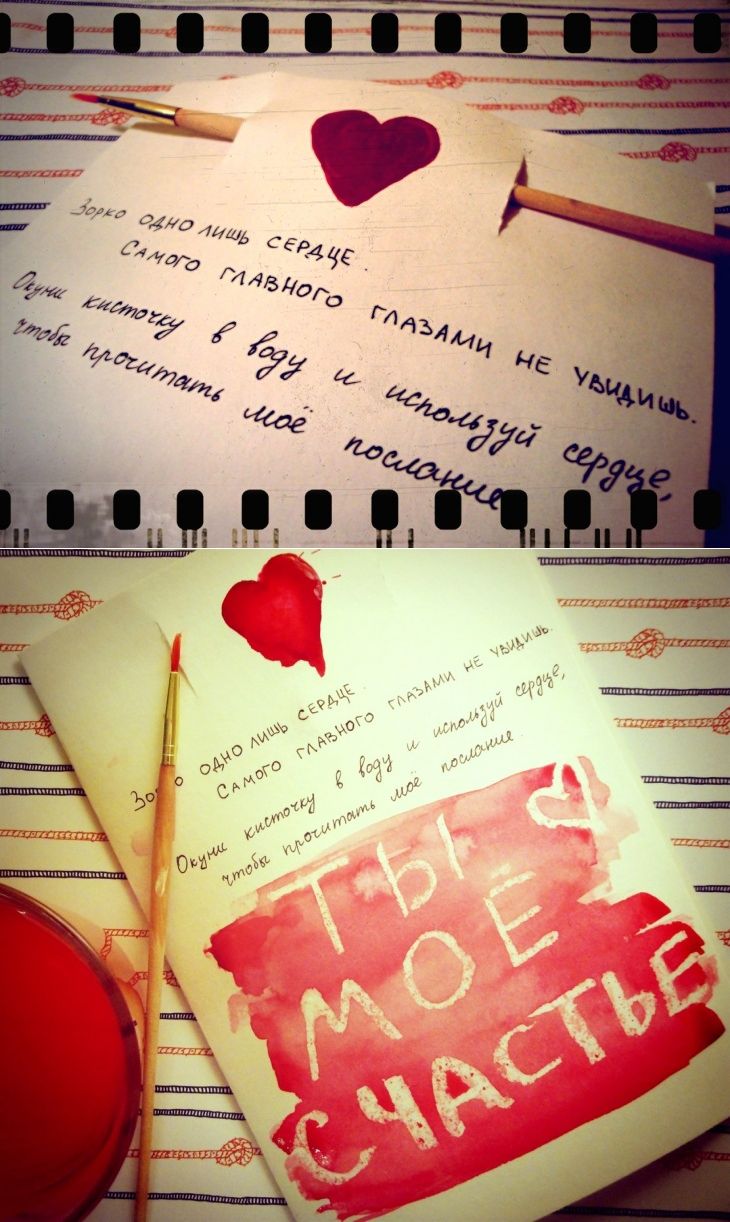 Зорко одно лишь сердце.
Самого главного глазами не увидишь.
Окуни кисточку в воду и используй сердце,
чтобы прочитать моё послание
Зорко одно лишь сердце.
Самого главного глазами не увидишь.
Окуни кисточку в воду и используй сердце,
чтобы прочитать моё послание.
ТЫ
МОЁ
СЧАСТЬЕ